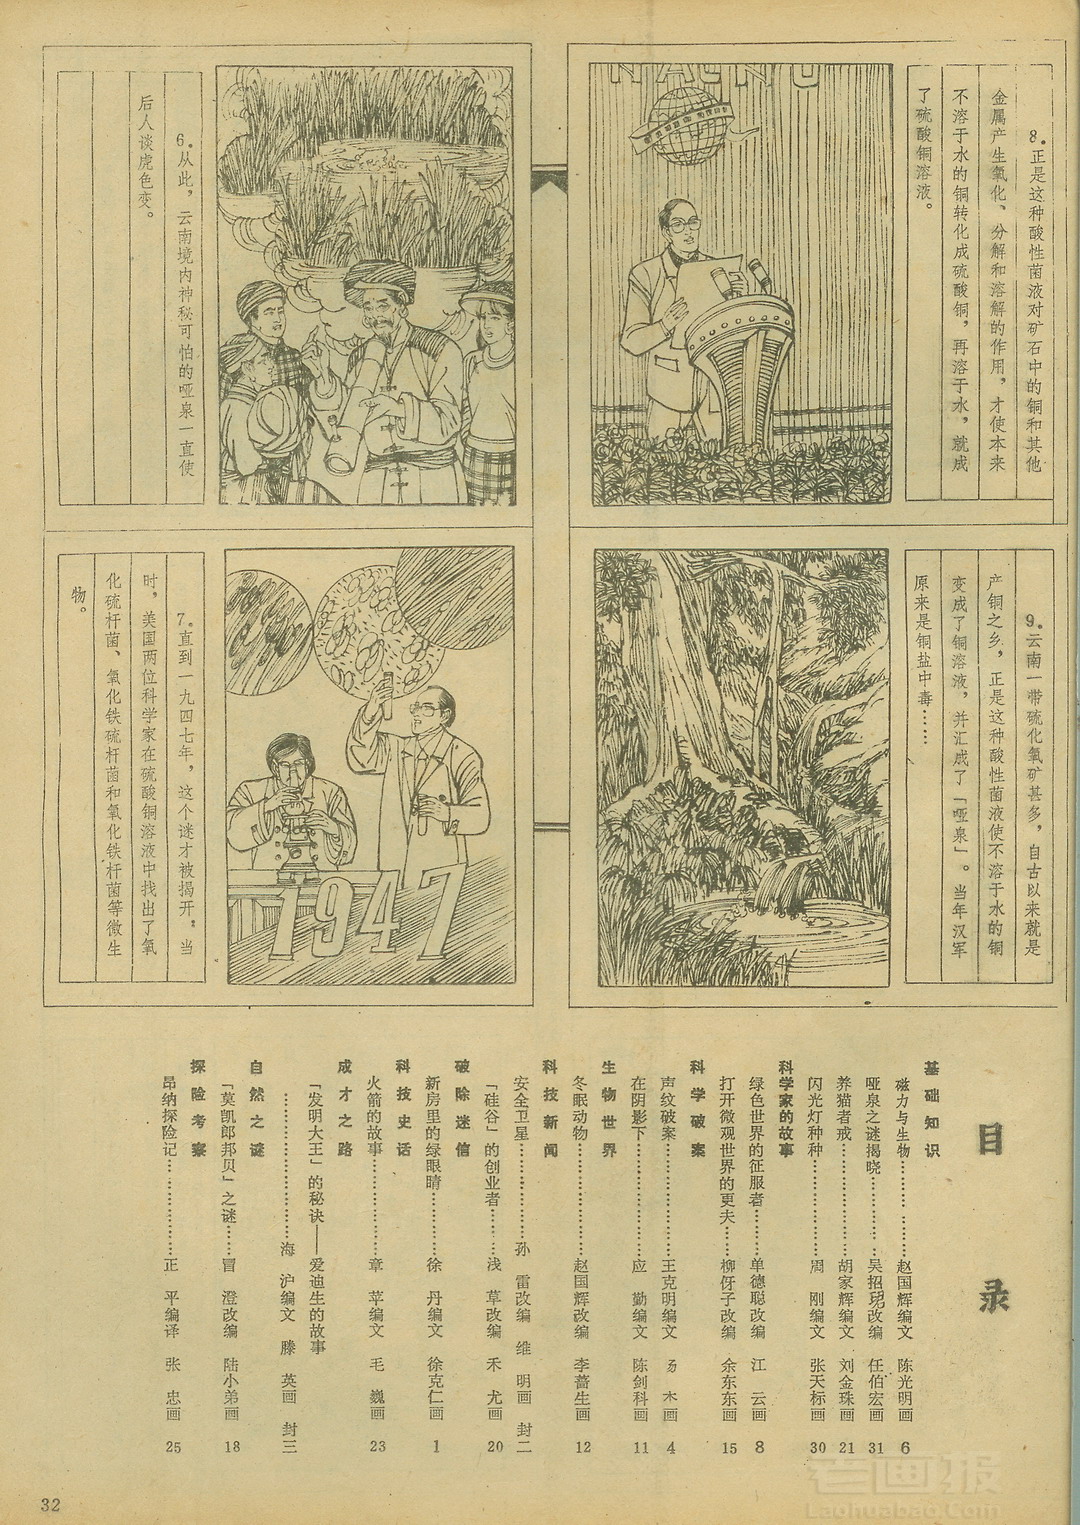 6.从此，云南境内神秘可怕的哑泉一直使
后人谈虎色变。
7.直到一九四七年，这个谜才被揭开。当
时，美国两位科学家在硫酸铜溶液中找出了氧
化硫杆菌、氧化铁硫杆菌和氧化铁杆菌等微生
物。
1947
8.正是这种酸性菌液对矿石中的铜和其他
金属产生氧化、分解和溶解的作用，才使本来
不溶于水的铜转化成硫酸铜，再溶于水，就成
了硫酸铜溶液。
9.云南一带硫化氧矿甚多，自古以来就是
产铜之乡，正是这种酸性菌液使不溶于水的铜
变成了铜溶液，并汇成了「哑泉」。当年汉军
原来是铜盐中毒……
目录
基础知识
磁力与生物………………赵国辉编文 陈光明画 6
哑泉之谜揭晓…………吴招玐改编 任伯宏画 31
养猫者戒………………胡家辉编文 刘金珠画 21
闪光灯种种……………周 刚编文 张天标画 30
科学家的故事
绿色世界的征服者………单德聪改编 江 云画 8
打开微观世界的更夫……柳伢子改编 余东东画 15
科学破案
声纹破案………………王克明编文 易 木画 4
在阴影下………………应 勤编文 陈剑科画 11
生物世界
冬眠动物………………赵国辉改编 李蔷生画 12
科技新闻
安全卫星………………孙 雷改编 维 明画 封二
「硅谷」的创业者……浅 草改编 禾 尤画 20
破除迷信
新房里的绿眼睛…………徐 丹编文 徐克仁画 1
科技史话
火箭的故事……………章 苹编文 毛 巍画 23
成才之路
「发明大王」的秘诀——爱迪生的故事
………………………海 沪编文 滕 英画 封三
自然之谜
「莫凯郎邦贝」之谜……冒 澄改编 陆小弟画 18
探险考察
昂纳探险记……………正 平编译 张 忠画 25
32
老画报
Laohuabao.Com